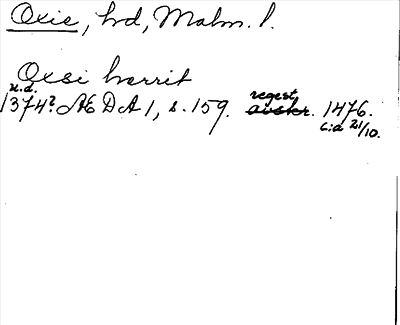 Oxie, hd, Malm. l.
Oxsi hærrit
u.d.
1374? ÆDA 1, s. 159. regest 1476.
avskr. c:a 21/10.